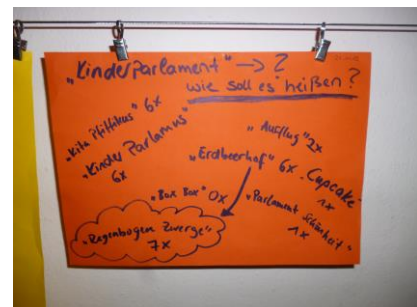 „Kinderparlament" → ?
wie soll es heißen?
„Kita Pfiffikus" 6x
„Kinder Parlamus"
6x
„Ausflug" 2x
„Erdbeerhof" 6x
„Cupcake"
1x
„Box Box" 0x
„Parlament Schönheit"
1x
„Regenbogen Zwerge"
7x